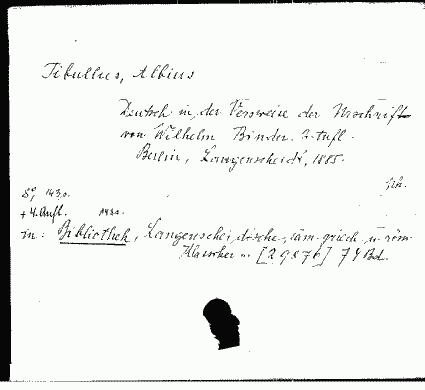 Tibullus, Albius
Deutsch in der Versweise der Urschrift
von Wilhelm Binder. 2. Aufl.
Berlin, Langenscheidt, 1885.
8°, 143 S.
+ 4. Aufl.
in: Bibliothek, Langenscheidtsche, säm. griech. u. röm.
Klassiker .. [29876] 74 Bd.